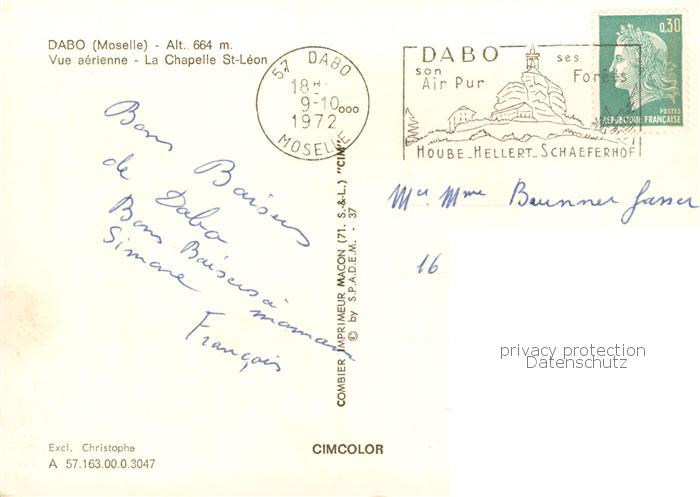 DABO (Moselle) - Alt. 664 m.
Vue aérienne - La Chapelle St-Léon
57 DABO
18H
9-10 000
1972
MOSELLE
DABO
son
Air Pur
ses
Forêts
HOUBE_HELLERT_SCHAEFERHOF
0,30
POSTES
REPUBLIQUE FRANÇAISE
Bons Baisers
de Dabo
Bons Baisers à maman
Simone
François
COMBIER IMPRIMEUR MACON (71. S.-&-L.) "CIM"
© by S.P.A.D.E.M. - 37
Mr Mme Brunner
16
privacy protection
Datenschutz
Excl. Christophe
A 57.163.00.0.3047
CIMCOLOR